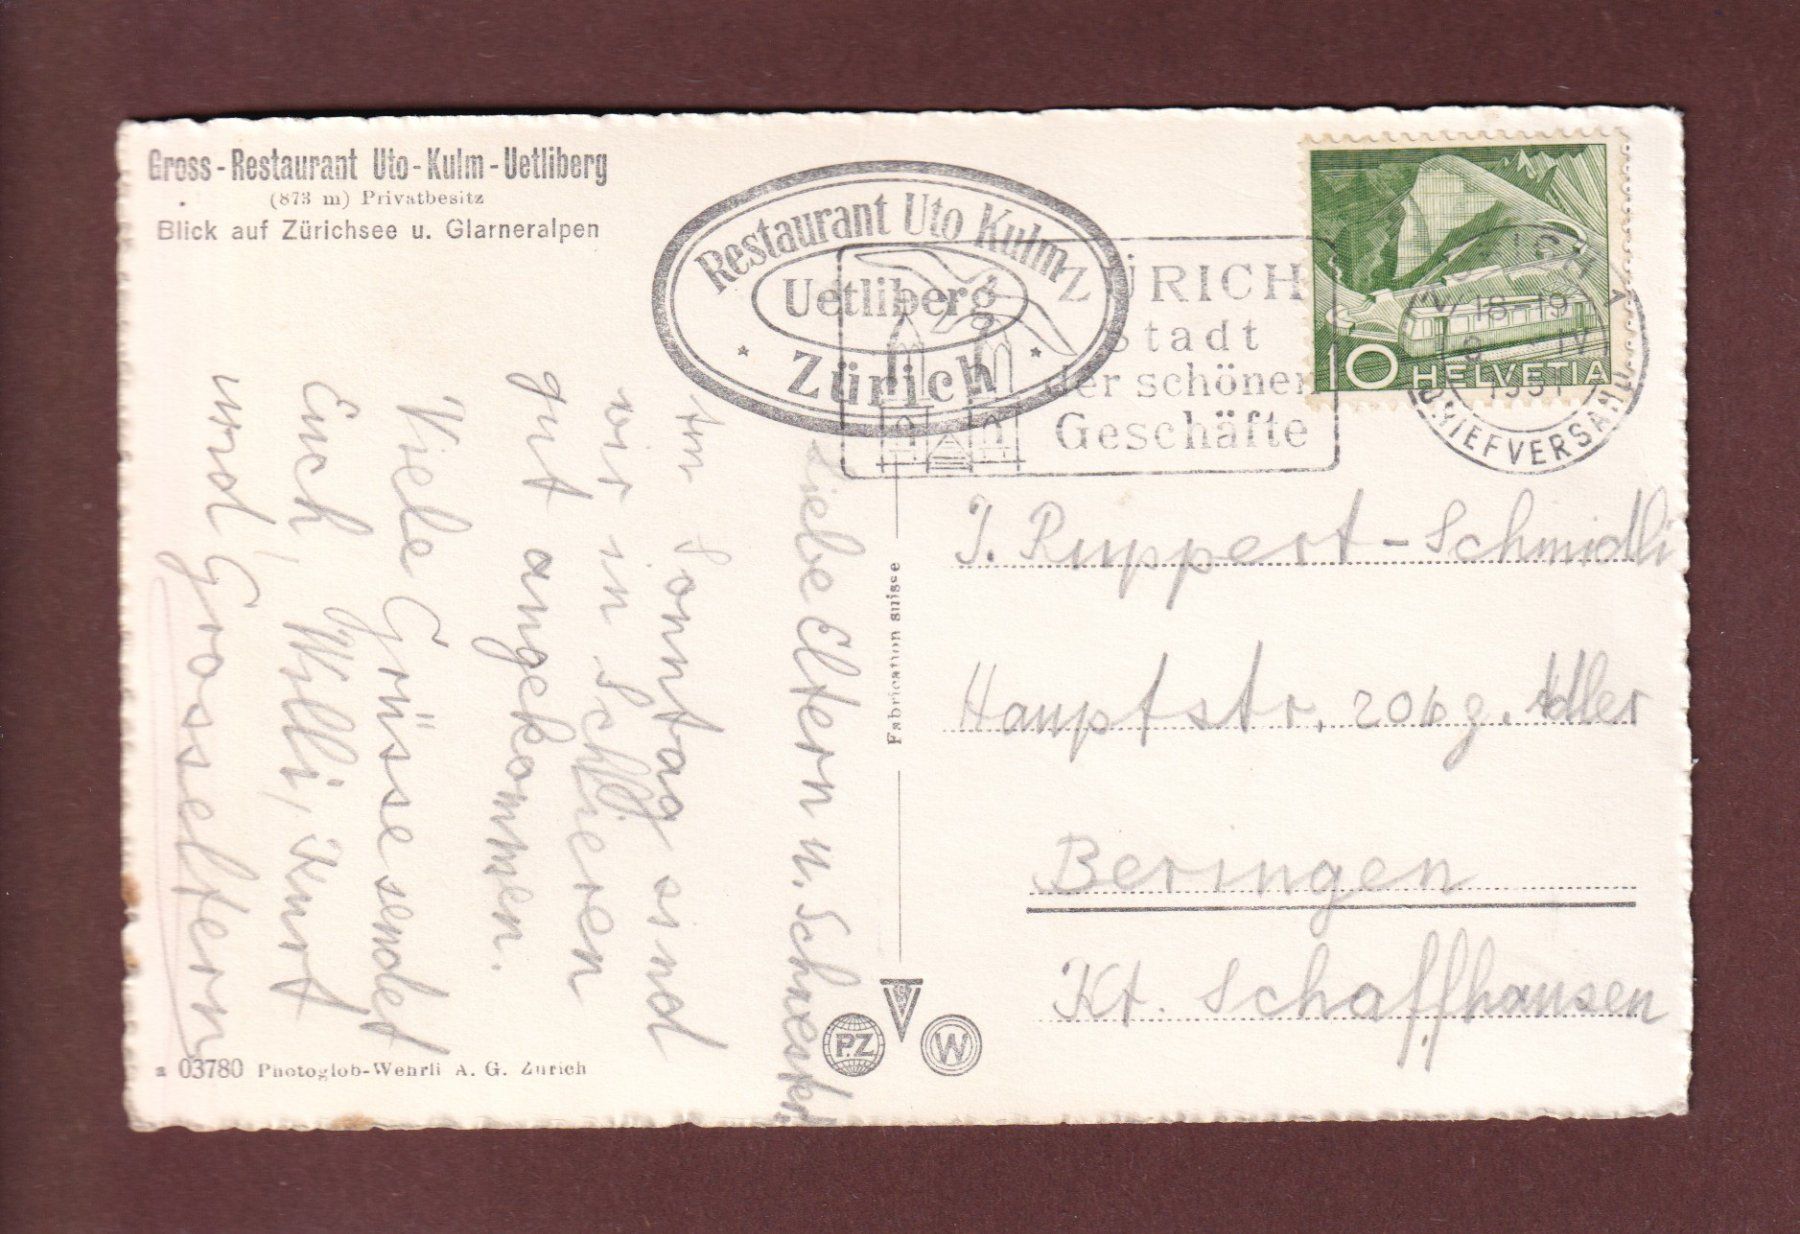 Gross-Restaurant Uto-Kulm-Uetliberg
(873 m) Privatbesitz
Blick auf Zürichsee u. Glarneralpen
Restaurant Uto Kulm
Uetliberg
Zürich
ZÜRICH
Stadt
der schönen
Geschäfte
18-19
IV
1951
BRIEFVERSAND
10 HELVETIA
Liebe Eltern u. Schwester
Am Sonntag sind
wir in Schlieren
gut angekommen.
Viele Grüsse sendet
Euch, Willi, Kurt
und Grosseltern
Fabrication suisse
J. Ruppert-Schmidli
Hauptstr. 206 z. Adler
Beringen
Kt. Schaffhausen
PZ
W
a 03780 Photoglob-Wehrli A. G. Zürich